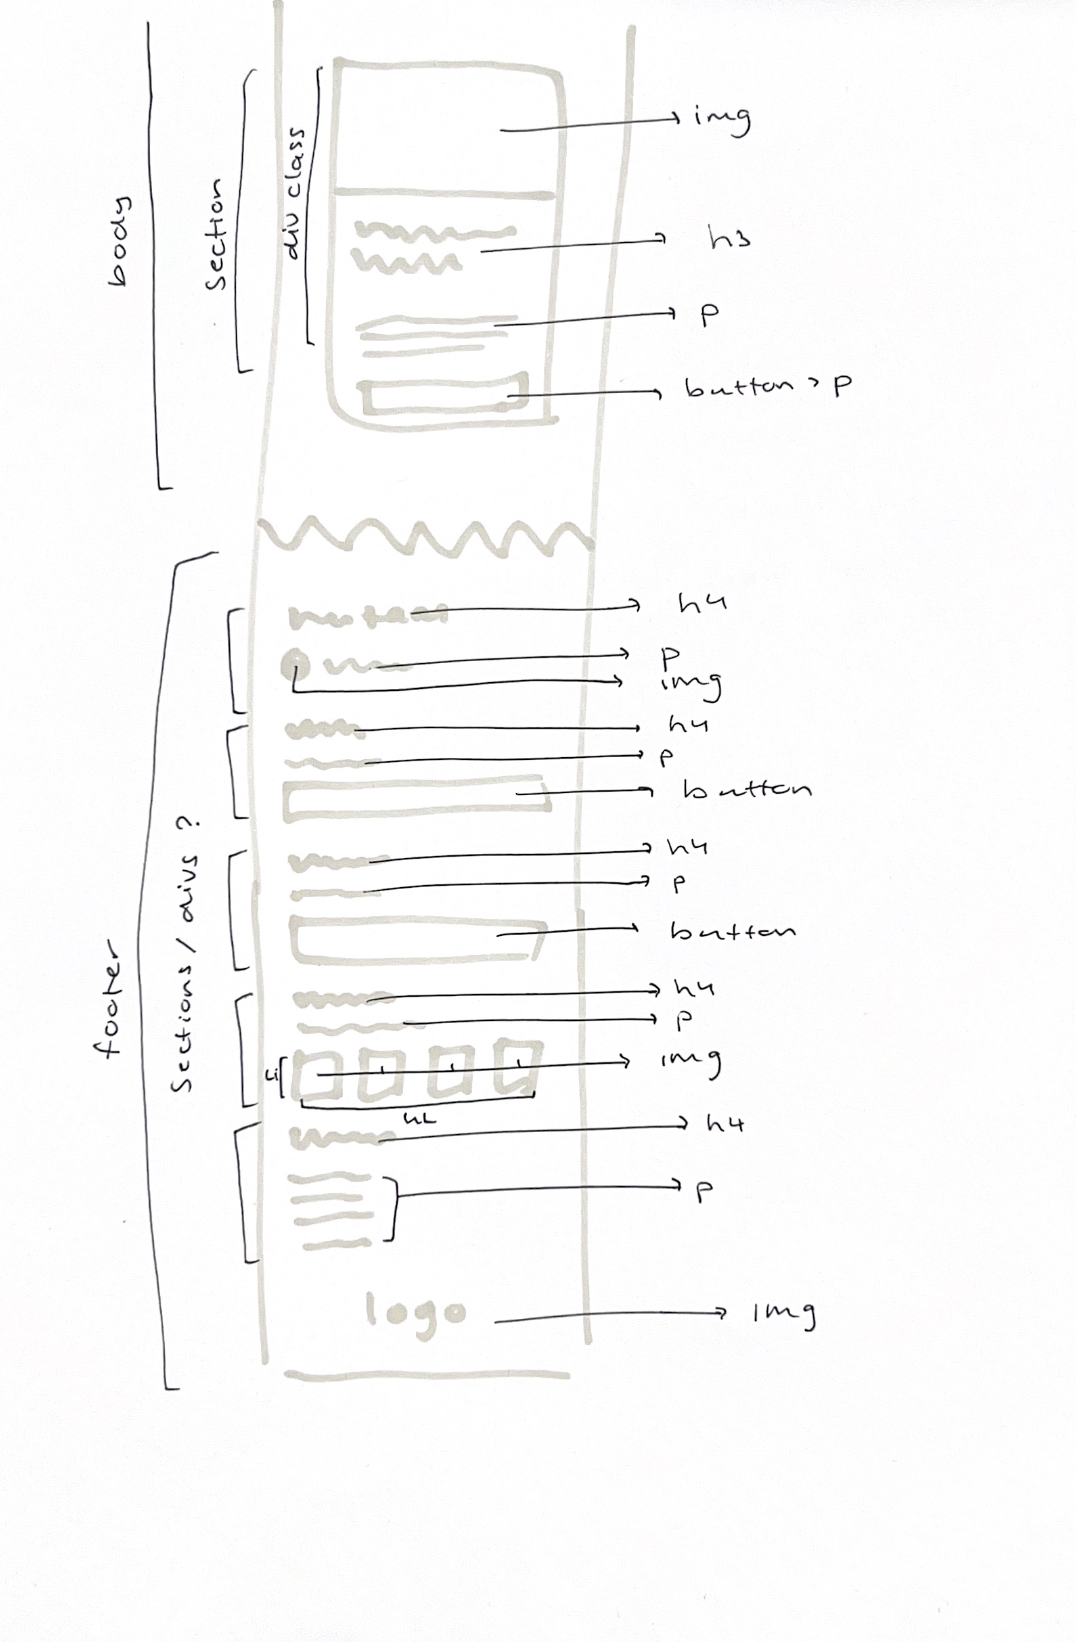 body
Section
div class
img
h3
p
button > p
footer
Sections / divs ?
h4
p
img
h4
p
button
h4
p
button
h4
p
img
Li
UL
h4
p
logo
img